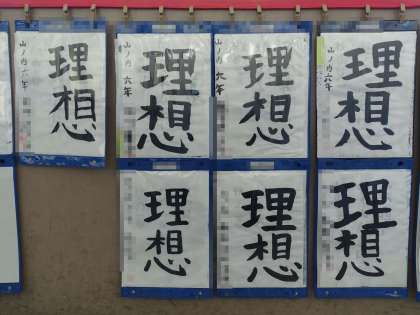 理想
山ノ内 六年
理想
山ノ内 六年
理想
山ノ内 六年
理想
山ノ内 六年
理想
理想
理想